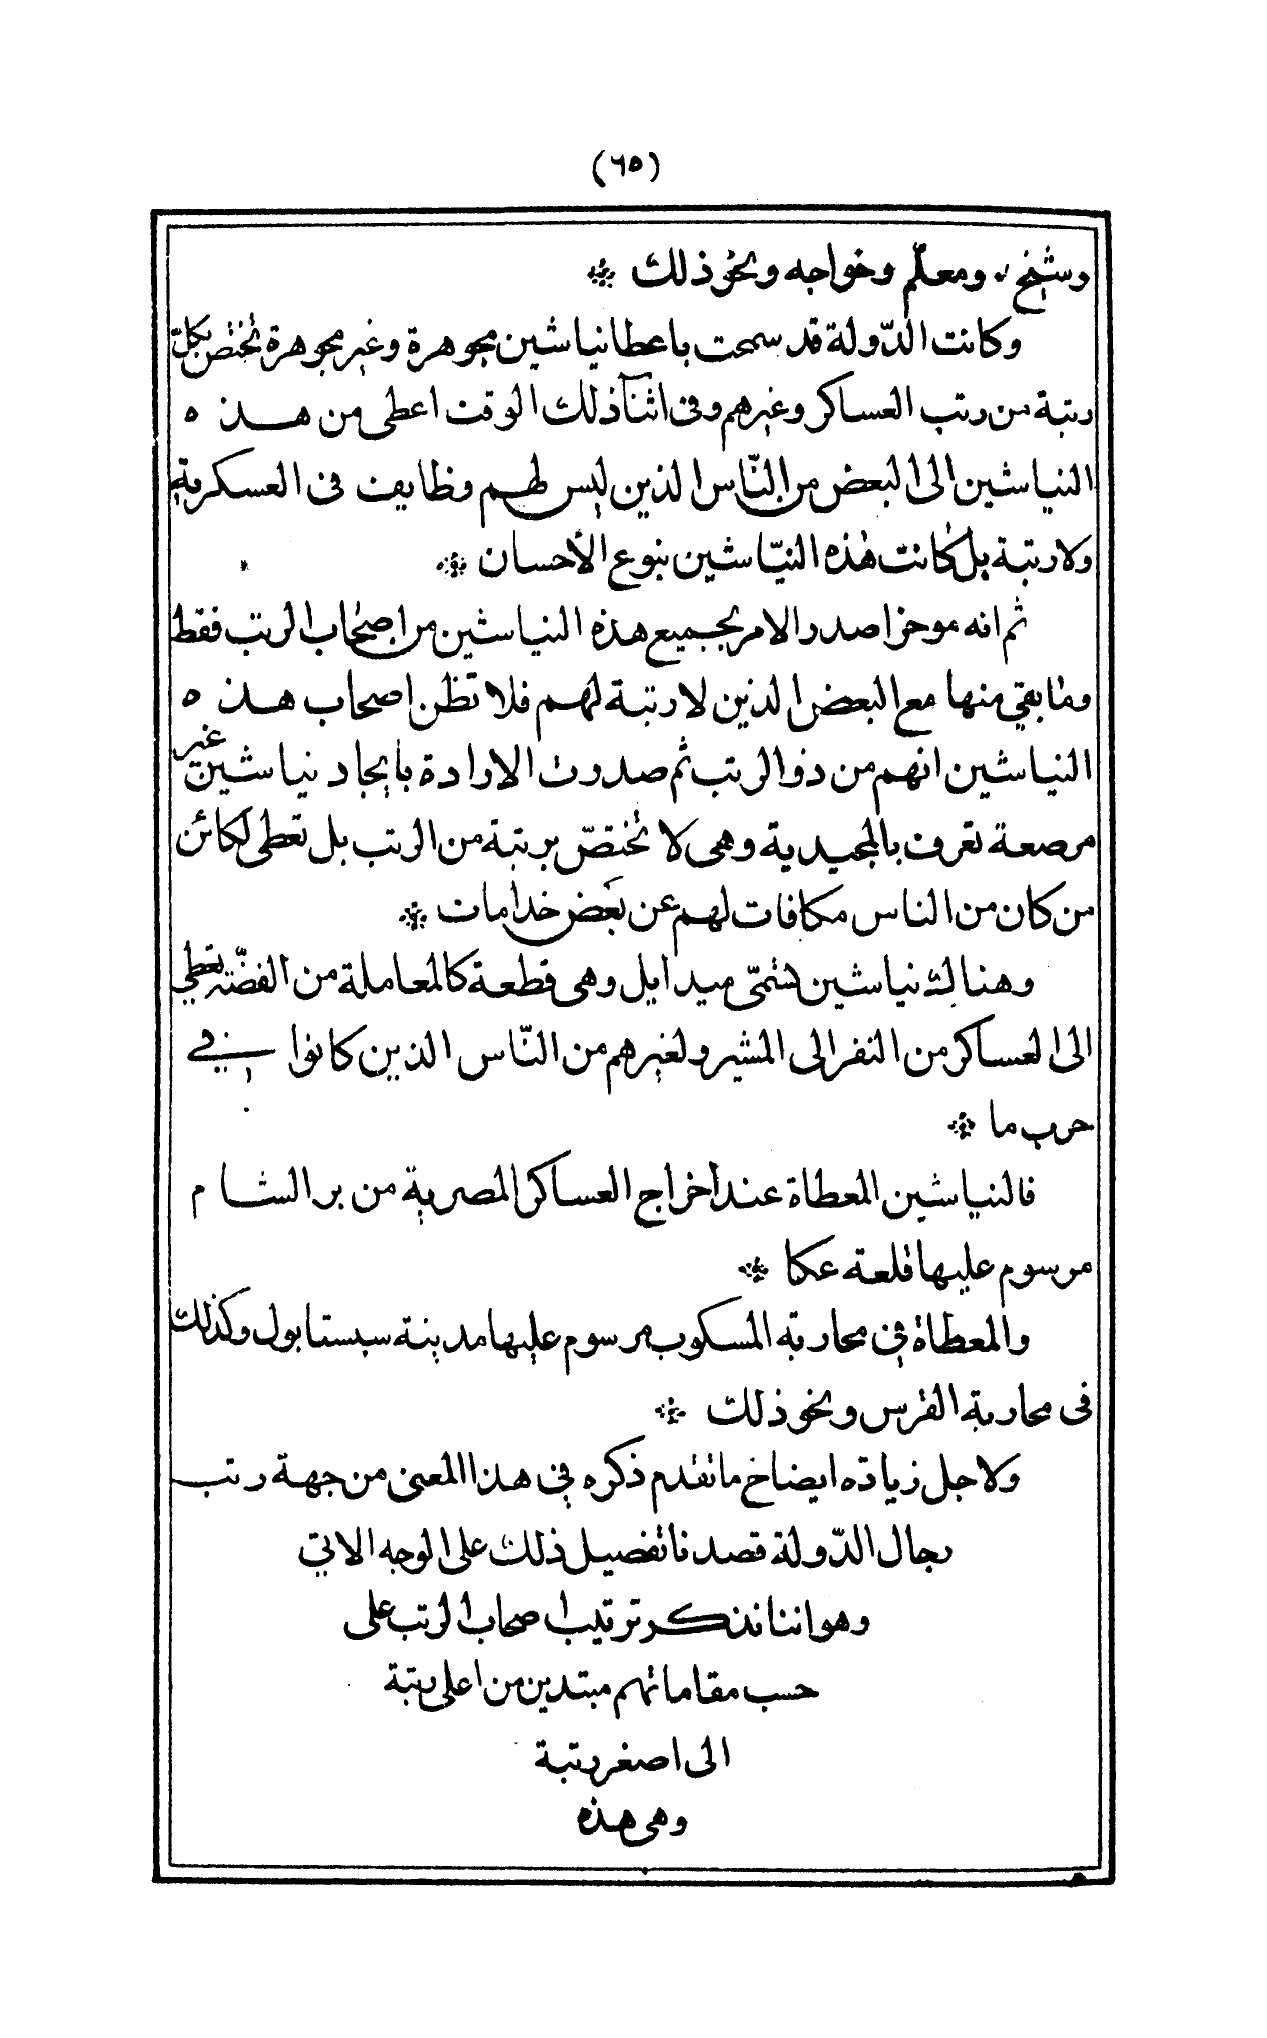 (٦٥)
وشيخ ومعلّم وخواجه ونحو ذلك ❊
وكانت الدّولة قد سمحت باعطا نياشين مجوهرة وغير مجوهرة تختص بكلّ
رتبة من رتب العساكر وغيرهم وفى اثنآ ذلك الوقت اعطى من هذه
النياشين الى البعض من النّاس الذين ليس لهم وظايف فى العسكرية
ولا رتبة بل كانت هذه النيّاشين بنوع الأحسان ❊
ثم انه موخرا صدر الامر بجميع هذه النياشين من اصحاب الرتب فقط
وما بقي منها مع البعض الذين لا رتبة لهم فلا تظن اصحاب هذه
النياشين انهم من ذو الرتب ثم صدرت الارادة بايجاد نياشين غير
مرصعة تعرف بالمجيدية وهى لا تختصّ برتبة من الرتب بل تعطى لكائن
من كان من الناس مكافات لهم عن بعض خدامات ❊
وهنالك نياشين تسمّى ميدايل وهى قطعة كالمعاملة من الفضّة تعطى
الى العساكر من النفر الى المشير ولغيرهم من النّاس الذين كانوا في
حرب ما ❊
فالنياشين المعطاة عند اخراج العساكر المصرية من بر الشام
مرسوم عليها قلعة عكا ❊
والمعطاة في محاربة المسكوب مرسوم عليها مدينة سبستابول وكذلك
فى محاربة الفرس ونحو ذلك ❊
ولاجل زيادة ايضاخ ما تقدم ذكره في هذا المعنى من جهة رتب
رجال الدّولة قصدنا تفصيل ذلك على الوجه الاتي
وهو اننا نذكر ترتيب اصحاب الرتب على
حسب مقاماتهم مبتدين من اعلى رتبة
الى اصغر رتبة
وهى هذه